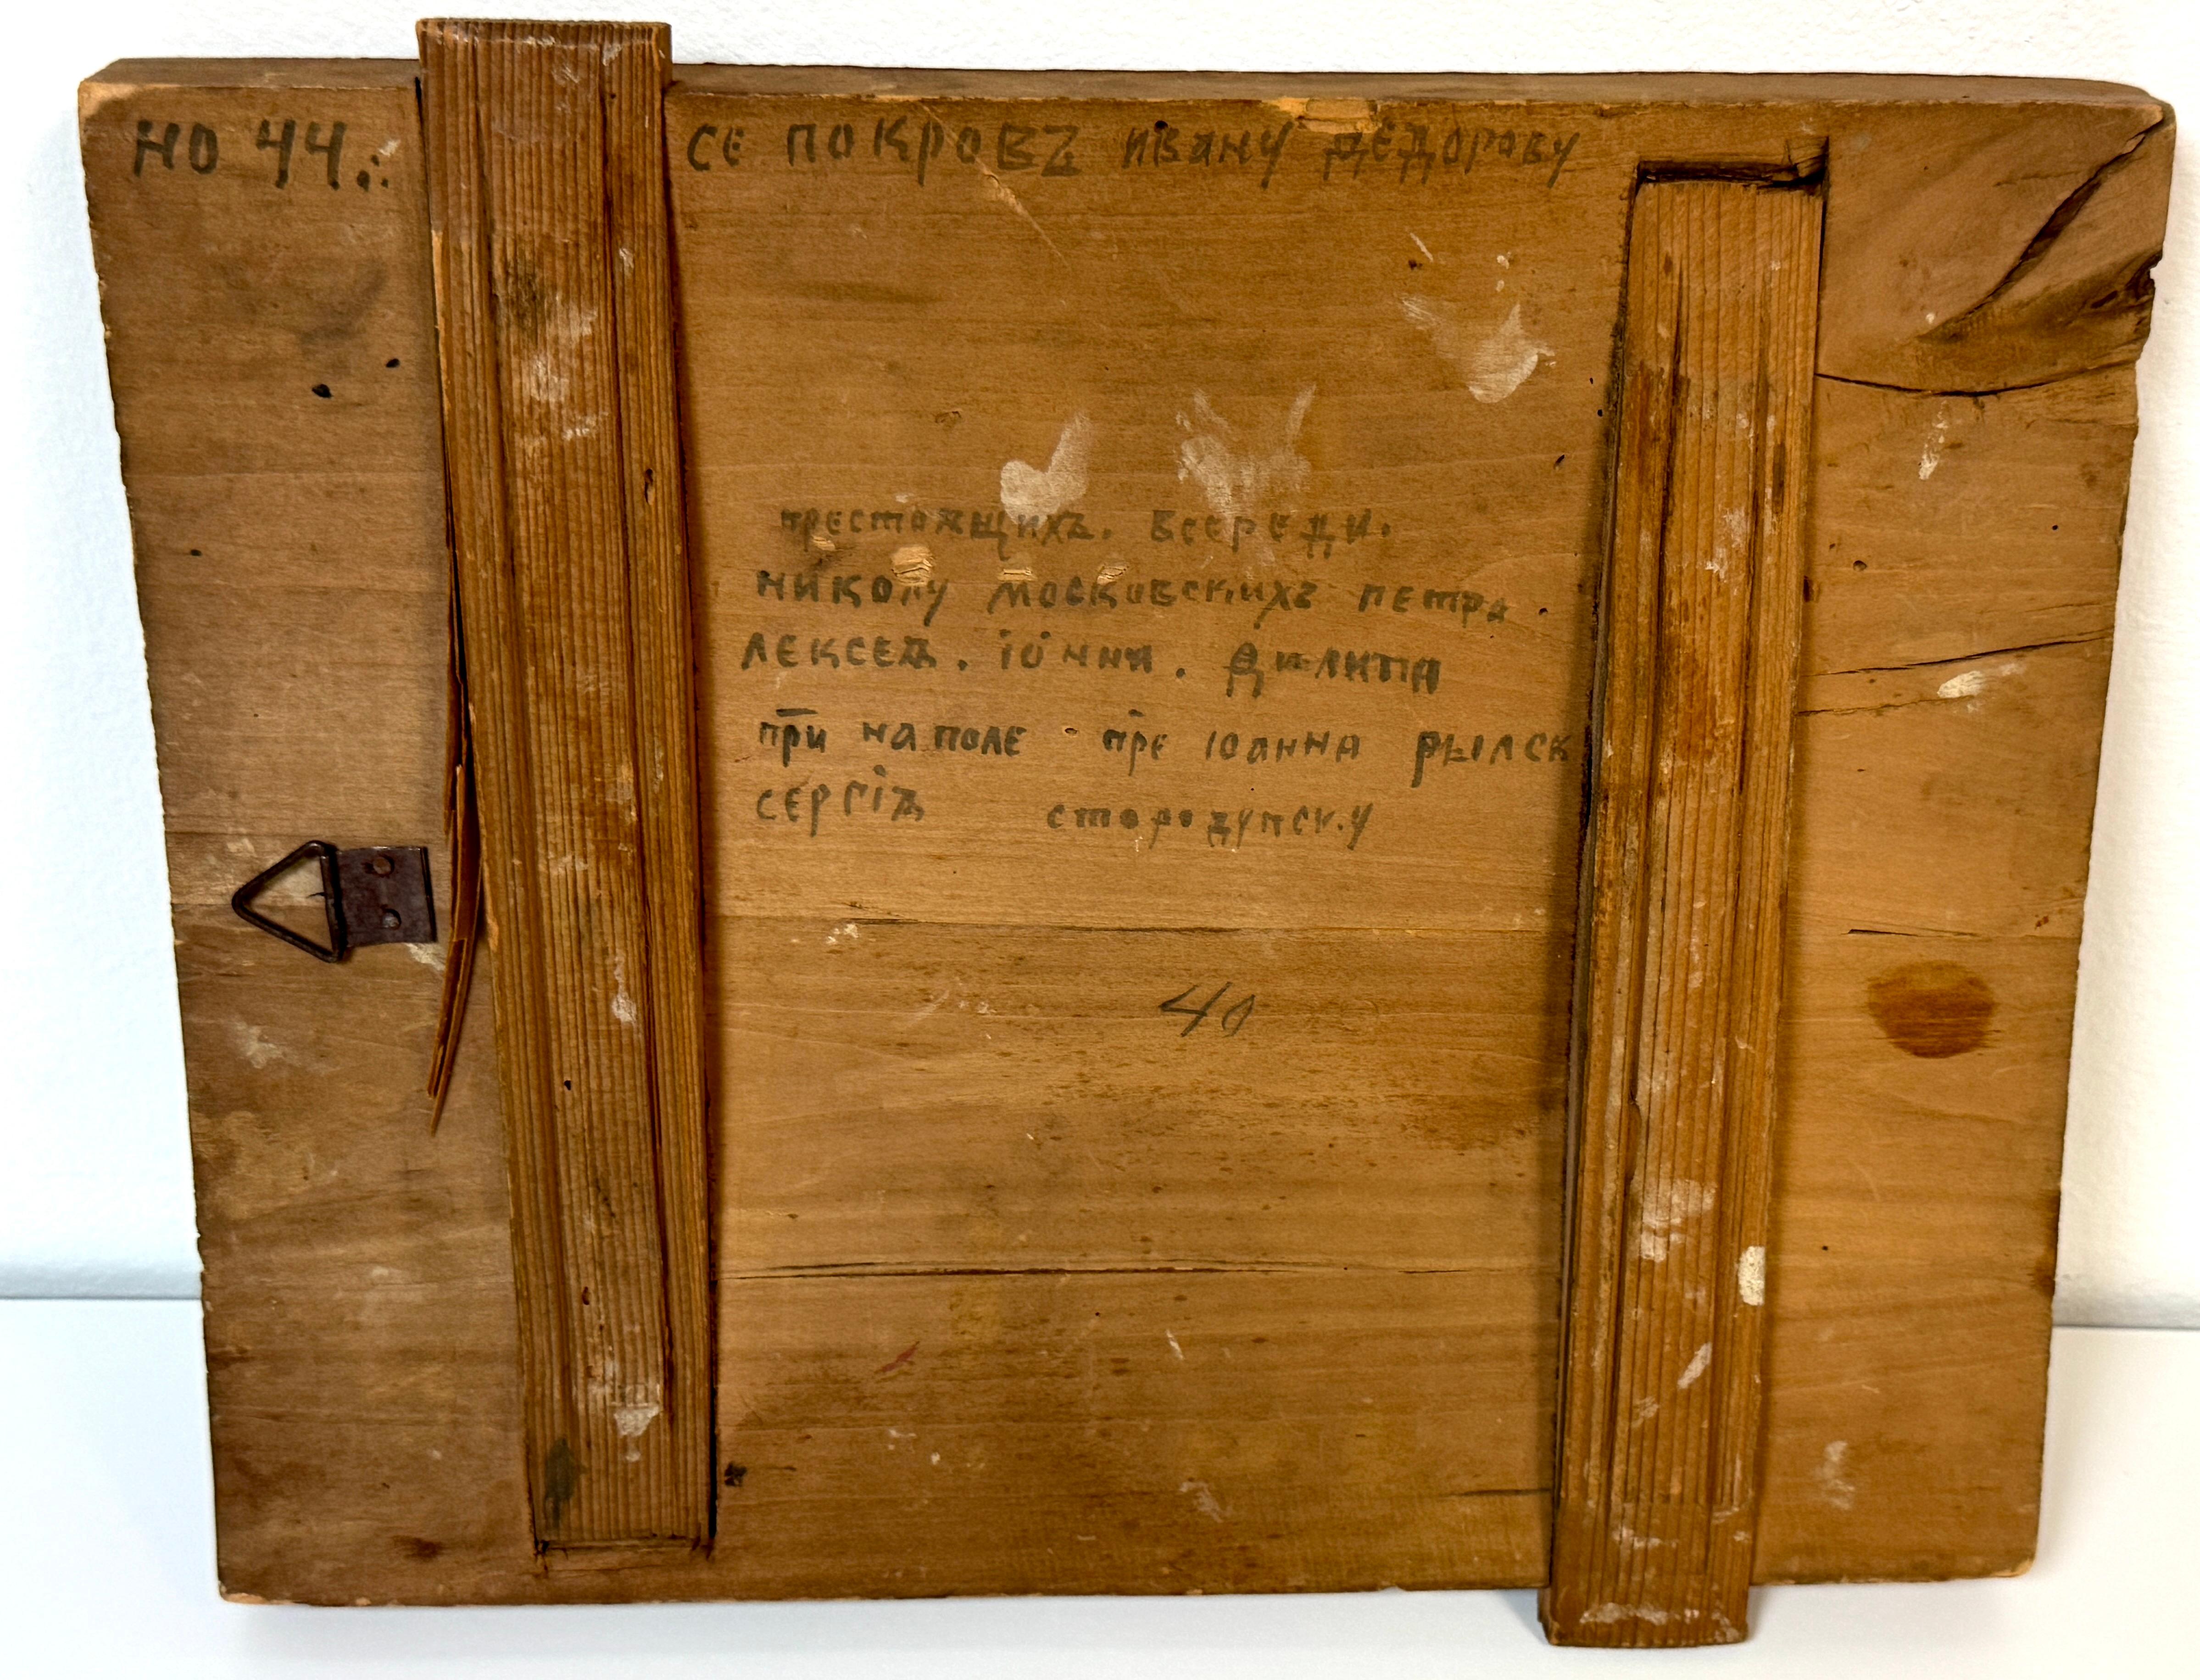 НО 44.: СЕ ПОКРОВЪ ИВАНУ
ПРЕСТОѦЩИХЪ. ВСЕРЕДИ.
НИКОЛУ МОСКОВСКИХЪ ПЕТРА.
ЛЕКСЕѦ. ІОННИ.
ПРИ НА ПОЛЕ ПРЕ ІОАННА РЫЛСК
СЕРГІѦ
40